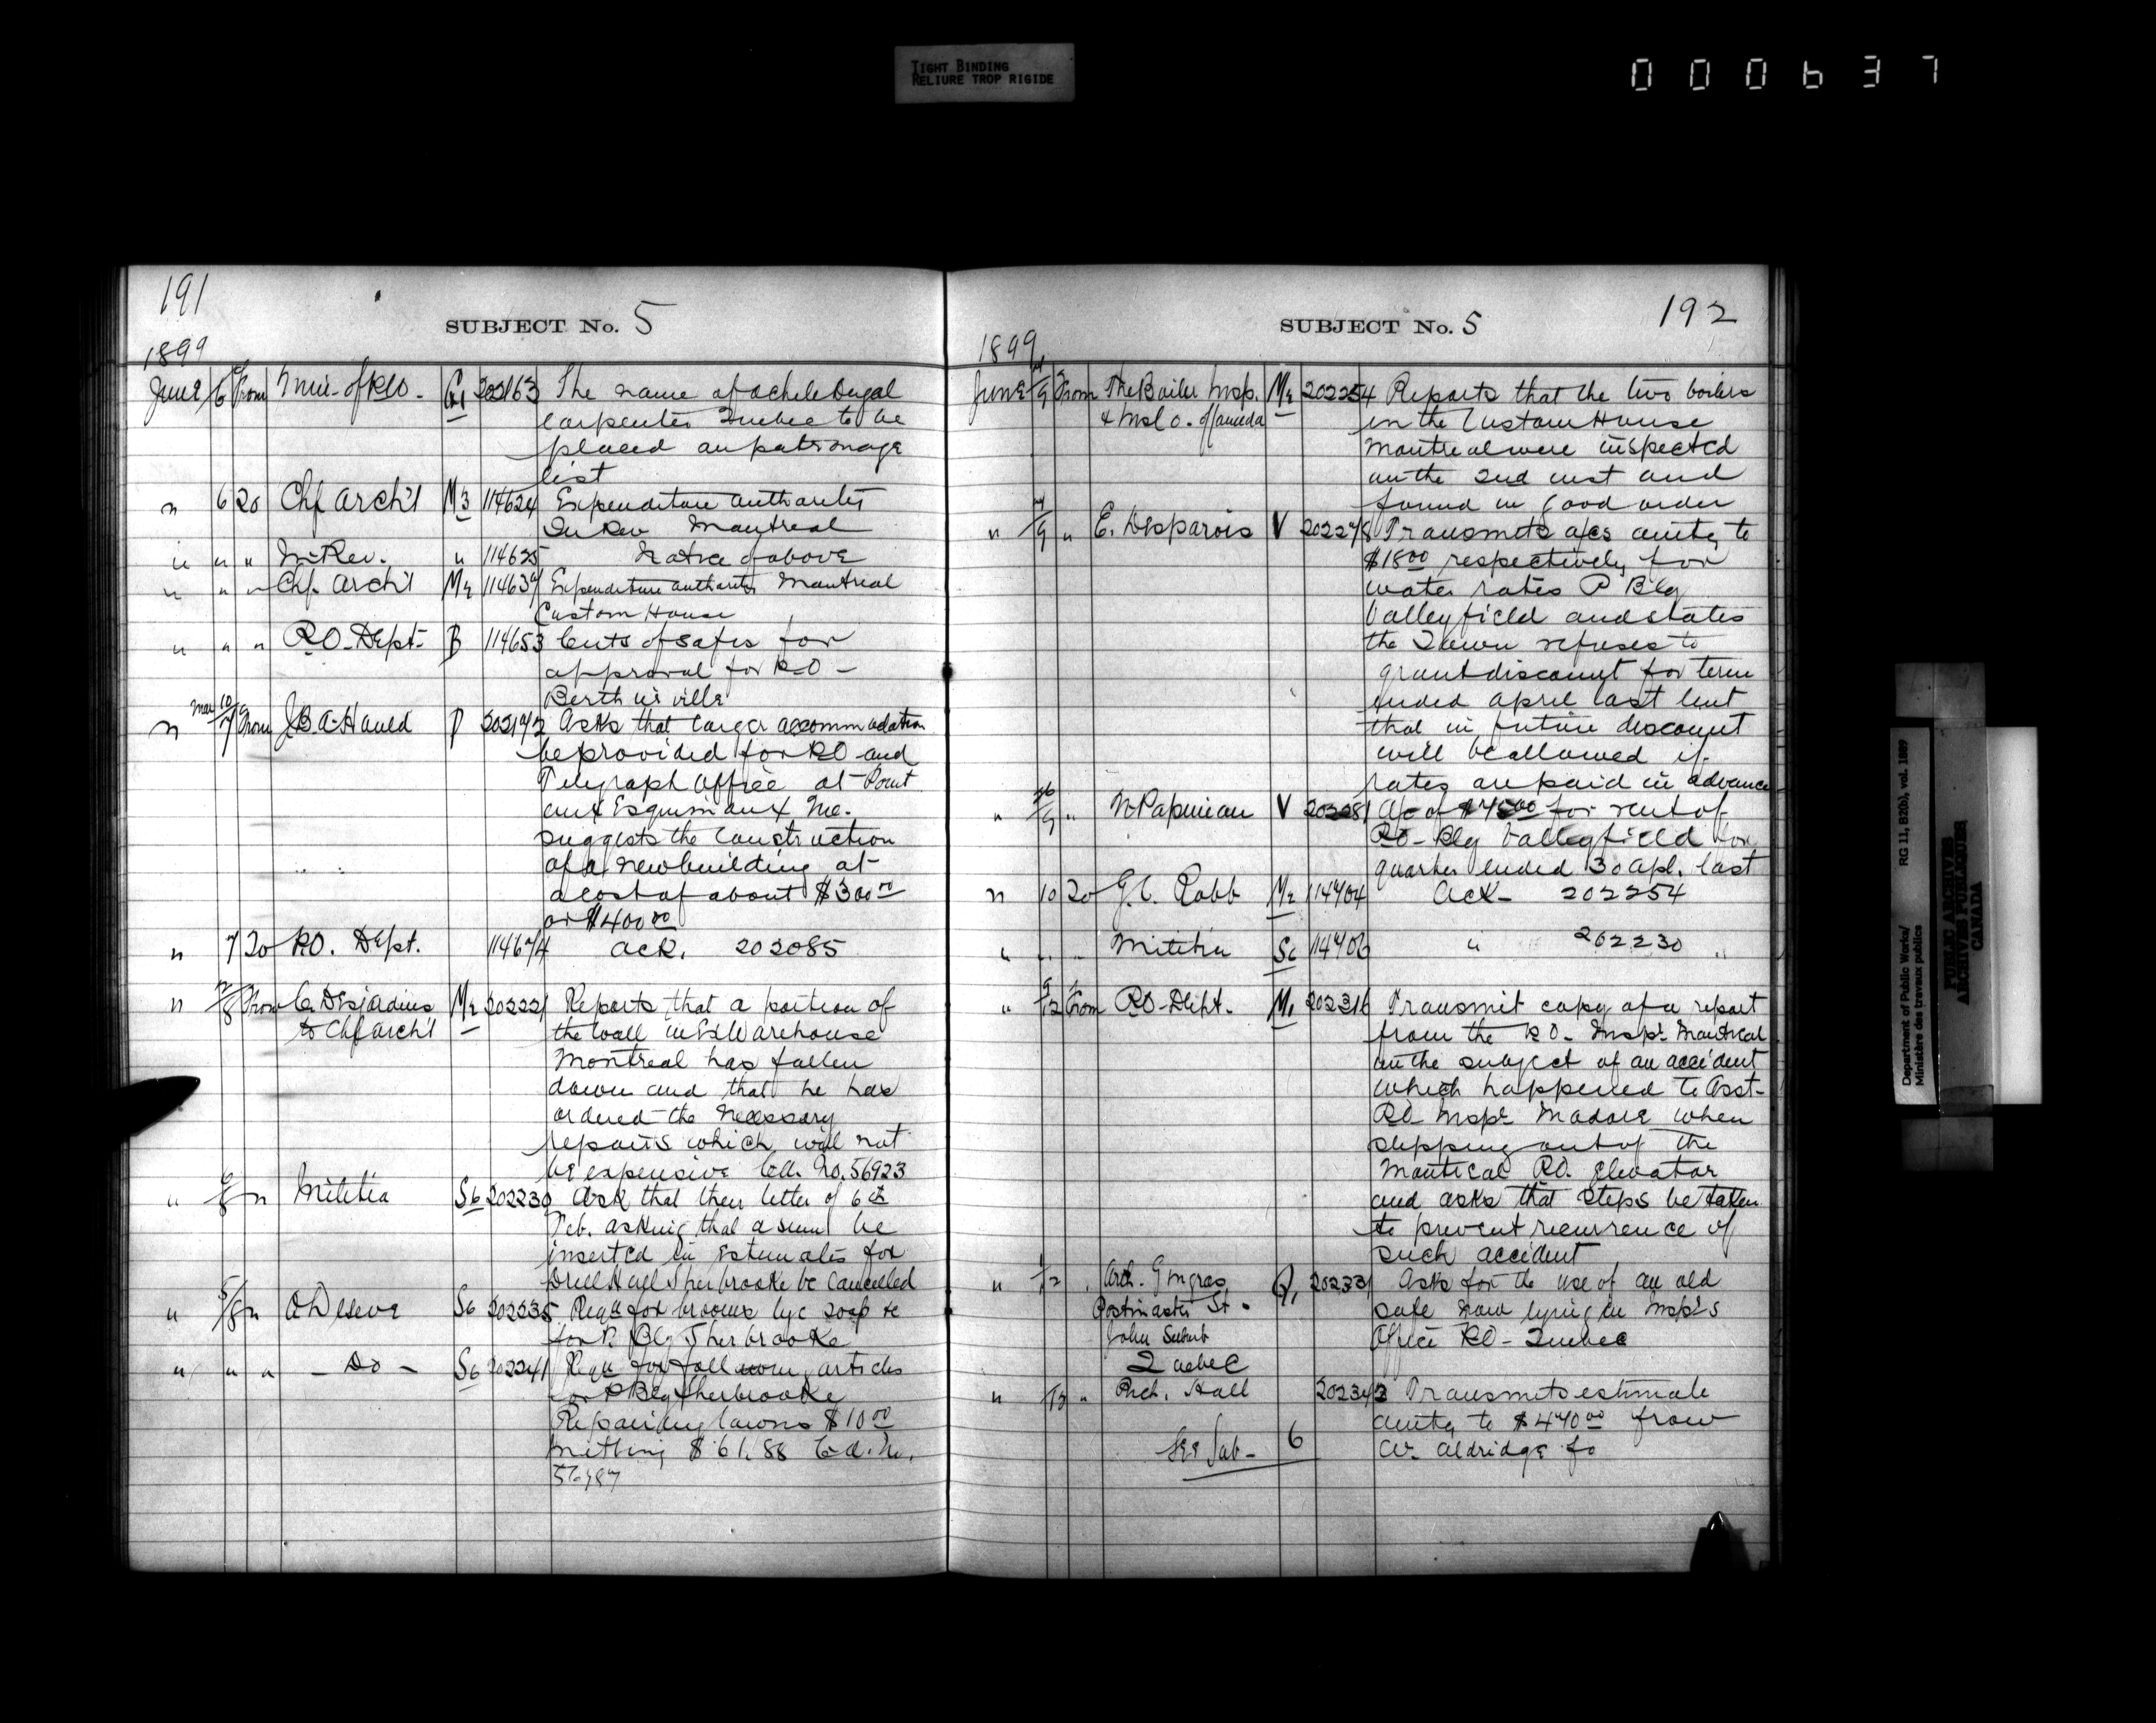 TIGHT BINDING
RELIURE TROP RIGIDE
000637
191
SUBJECT No. 5
1899
June 6 From Min. of PO. Q1 202163 The name of Achele Dugal
carpenter Quebec to be
placed on patronage
list
" 6 To Chf Arch't M3 114624 Expenditure authorities
In Rev Montreal
" " " In Rev. " 114625 Notice of above
" " " Chf. Arch't M2 114639 Expenditure authority Montreal
Custom House
" " " PO. Dept. B 114653 Cuts of safes for
approval for PO -
Berthierville
" Mar 10/7 From J.B.A. Hould P 202192 Asks that larger accommodation
be provided for PO and
Telegraph Office at Point
aux Esquimaux Que.
suggests the construction
of a new building at
a cost of about $300.00
or $400.00
" 7 To PO. Dept. 114674 Ack. 202085
" /8 From C. Desjardins M2 202221 Reports that a portion of
to Chf Arch't the wall in Ex Warehouse
Montreal has fallen
down and that he has
ordered the necessary
repairs which will not
be expensive Cd. No. 56923
" /8 " Militia S6 202230 Ask that their letter of 6th
Feb. asking that a sum be
inserted in Estimates for
Drill Hall Sherbrooke be cancelled
" 5/8 " A Deseve S6 202235 Reqn for brooms lye soap &c
for P. Blg Sherbrooke
" " " - Do - S6 202241 Reqn for following articles
for P Blg Sherbrooke
Repairing lawns $10.00
$61.88 Cd. No.
56987
SUBJECT No. 5
192
1899
June /9 From The Boiler Insp. M2 202254 Reports that the two boilers
& Ins Co. of Canada in the Custom House
Montreal were inspected
on the 2nd inst and
found in good order
" /9 " E. Desparois V 202278 Transmits a/cs amtg to
$18.00 respectively for
water rates P Blg
Valleyfield and states
the Town refuses to
grant discount for term
ended April last but
that in future discount
will be allowed if
rates are paid in advance
" /9 " N Papineau V 202281 A/c of $45.00 for rent of
PO - Blg Valleyfield for
quarter ended 30 Apl. last
" 10 To G. C. Robb M2 114704 Ack - 202254
" " " Militia S6 114706 " 202230
" 9/12 From PO - Dept. M1 202316 Transmit copy of a report
from the PO - Inspr Montreal
on the subject of an accident
which happened to Asst-
PO Inspr Madore when
stepping out of the
Montreal PO. elevator
and asks that steps be taken
to prevent recurrence of
such accident
" 1/12 " Arch. Gingras Q1 202331 Asks for the use of an old
Postmaster St. safe now lying in Insp's
John Suburb Office PO - Quebec
Quebec
" /13 " Rich. Hall 202343 Transmits estimate
amtg to $470.00 from
See Sub - 6 W. Aldridge fo
Department of Public Works/
Ministère des travaux publics
RG 11, B2(b), vol. 1889
PUBLIC ARCHIVES
ARCHIVES PUBLIQUES
CANADA